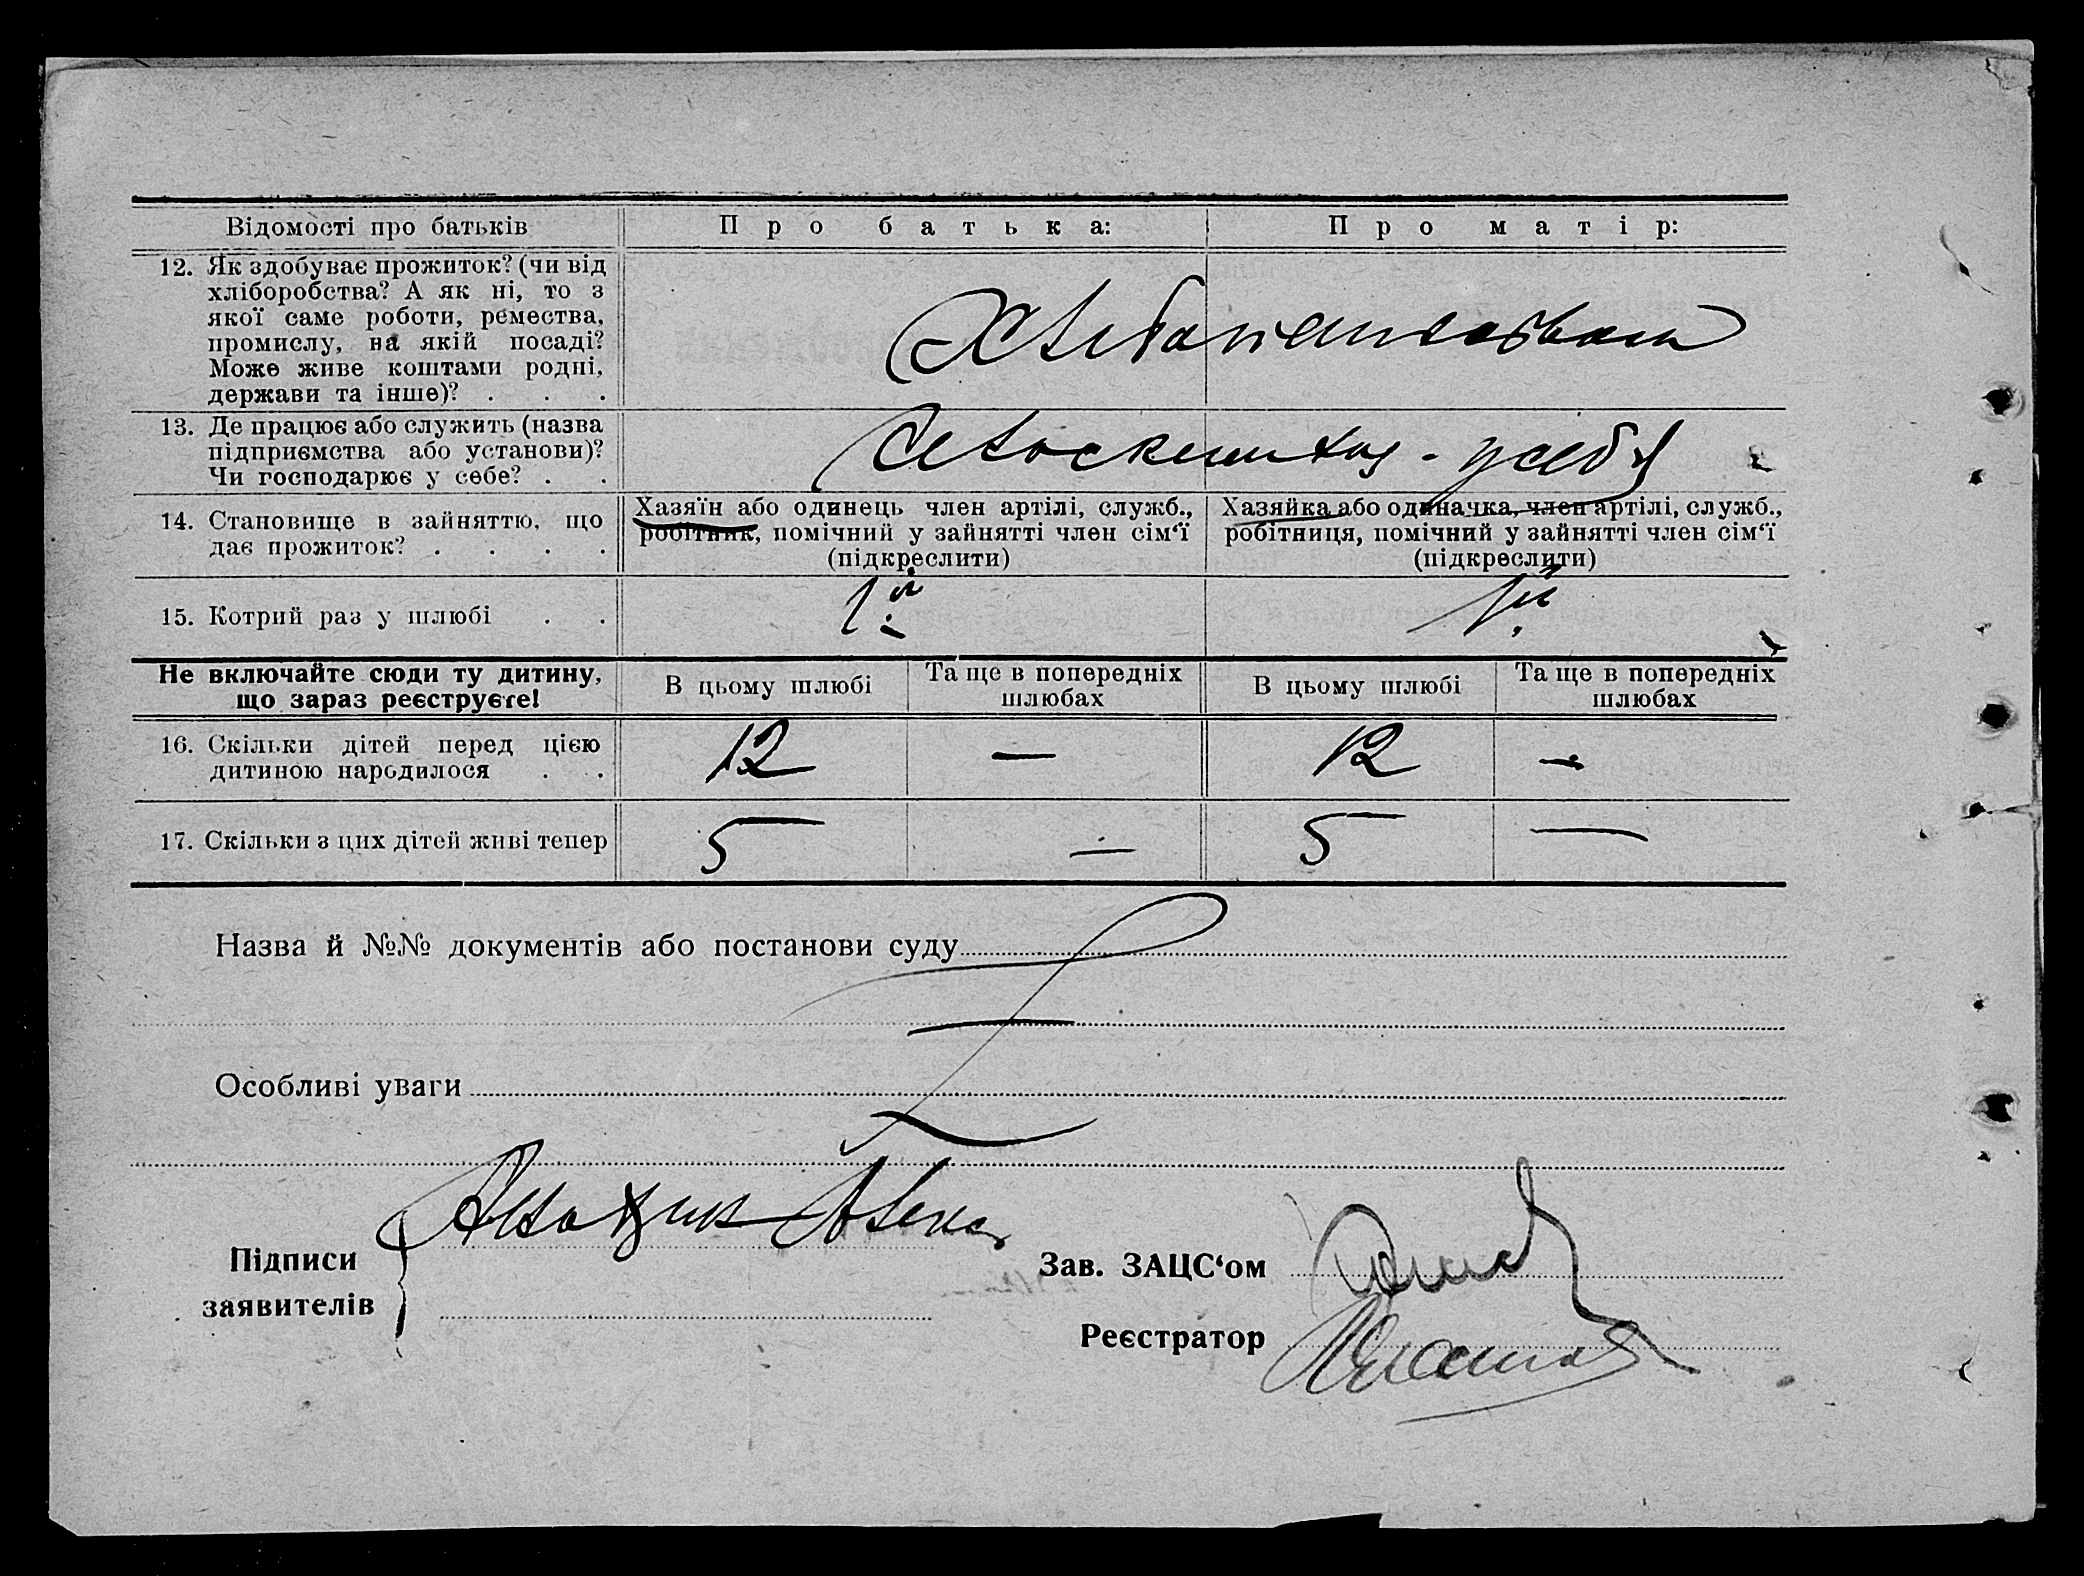 Відомості про батьків
Про батька:
Про матір:
12. Як здобуває прожиток? (чи від
хліборобства? А як ні, то з
якої саме роботи, ремества,
промислу, на якій посаді?
Може живе коштами родні,
держави та інше)? . . .
Хлебопашеством
13. Де працює або служить (назва
підприємства або установи)?
Чи господарює у себе? . .
у себя
14. Становище в зайняттю, що
дає прожиток? . . . .
Хазяїн або одинець член артілі, служб.,
робітник, помічний у зайнятті член сім‘ї
(підкреслити)
Хазяйка або одиначка, член артілі, служб.,
робітниця, помічний у зайнятті член сім‘ї
(підкреслити)
15. Котрий раз у шлюбі . .
1й
1й
Не включайте сюди ту дитину,
що зараз реєструєте!
В цьому шлюбі
Та ще в попередніх
шлюбах
В цьому шлюбі
Та ще в попередніх
шлюбах
16. Скільки дітей перед цією
дитиною народилося . .
12 — 12 —
17. Скільки з цих дітей живі тепер
5 — 5 —
Назва й №№ документів або постанови суду
Особливі уваги
Підписи
заявителів
Зав. ЗАЦС‘ом
Реєстратор